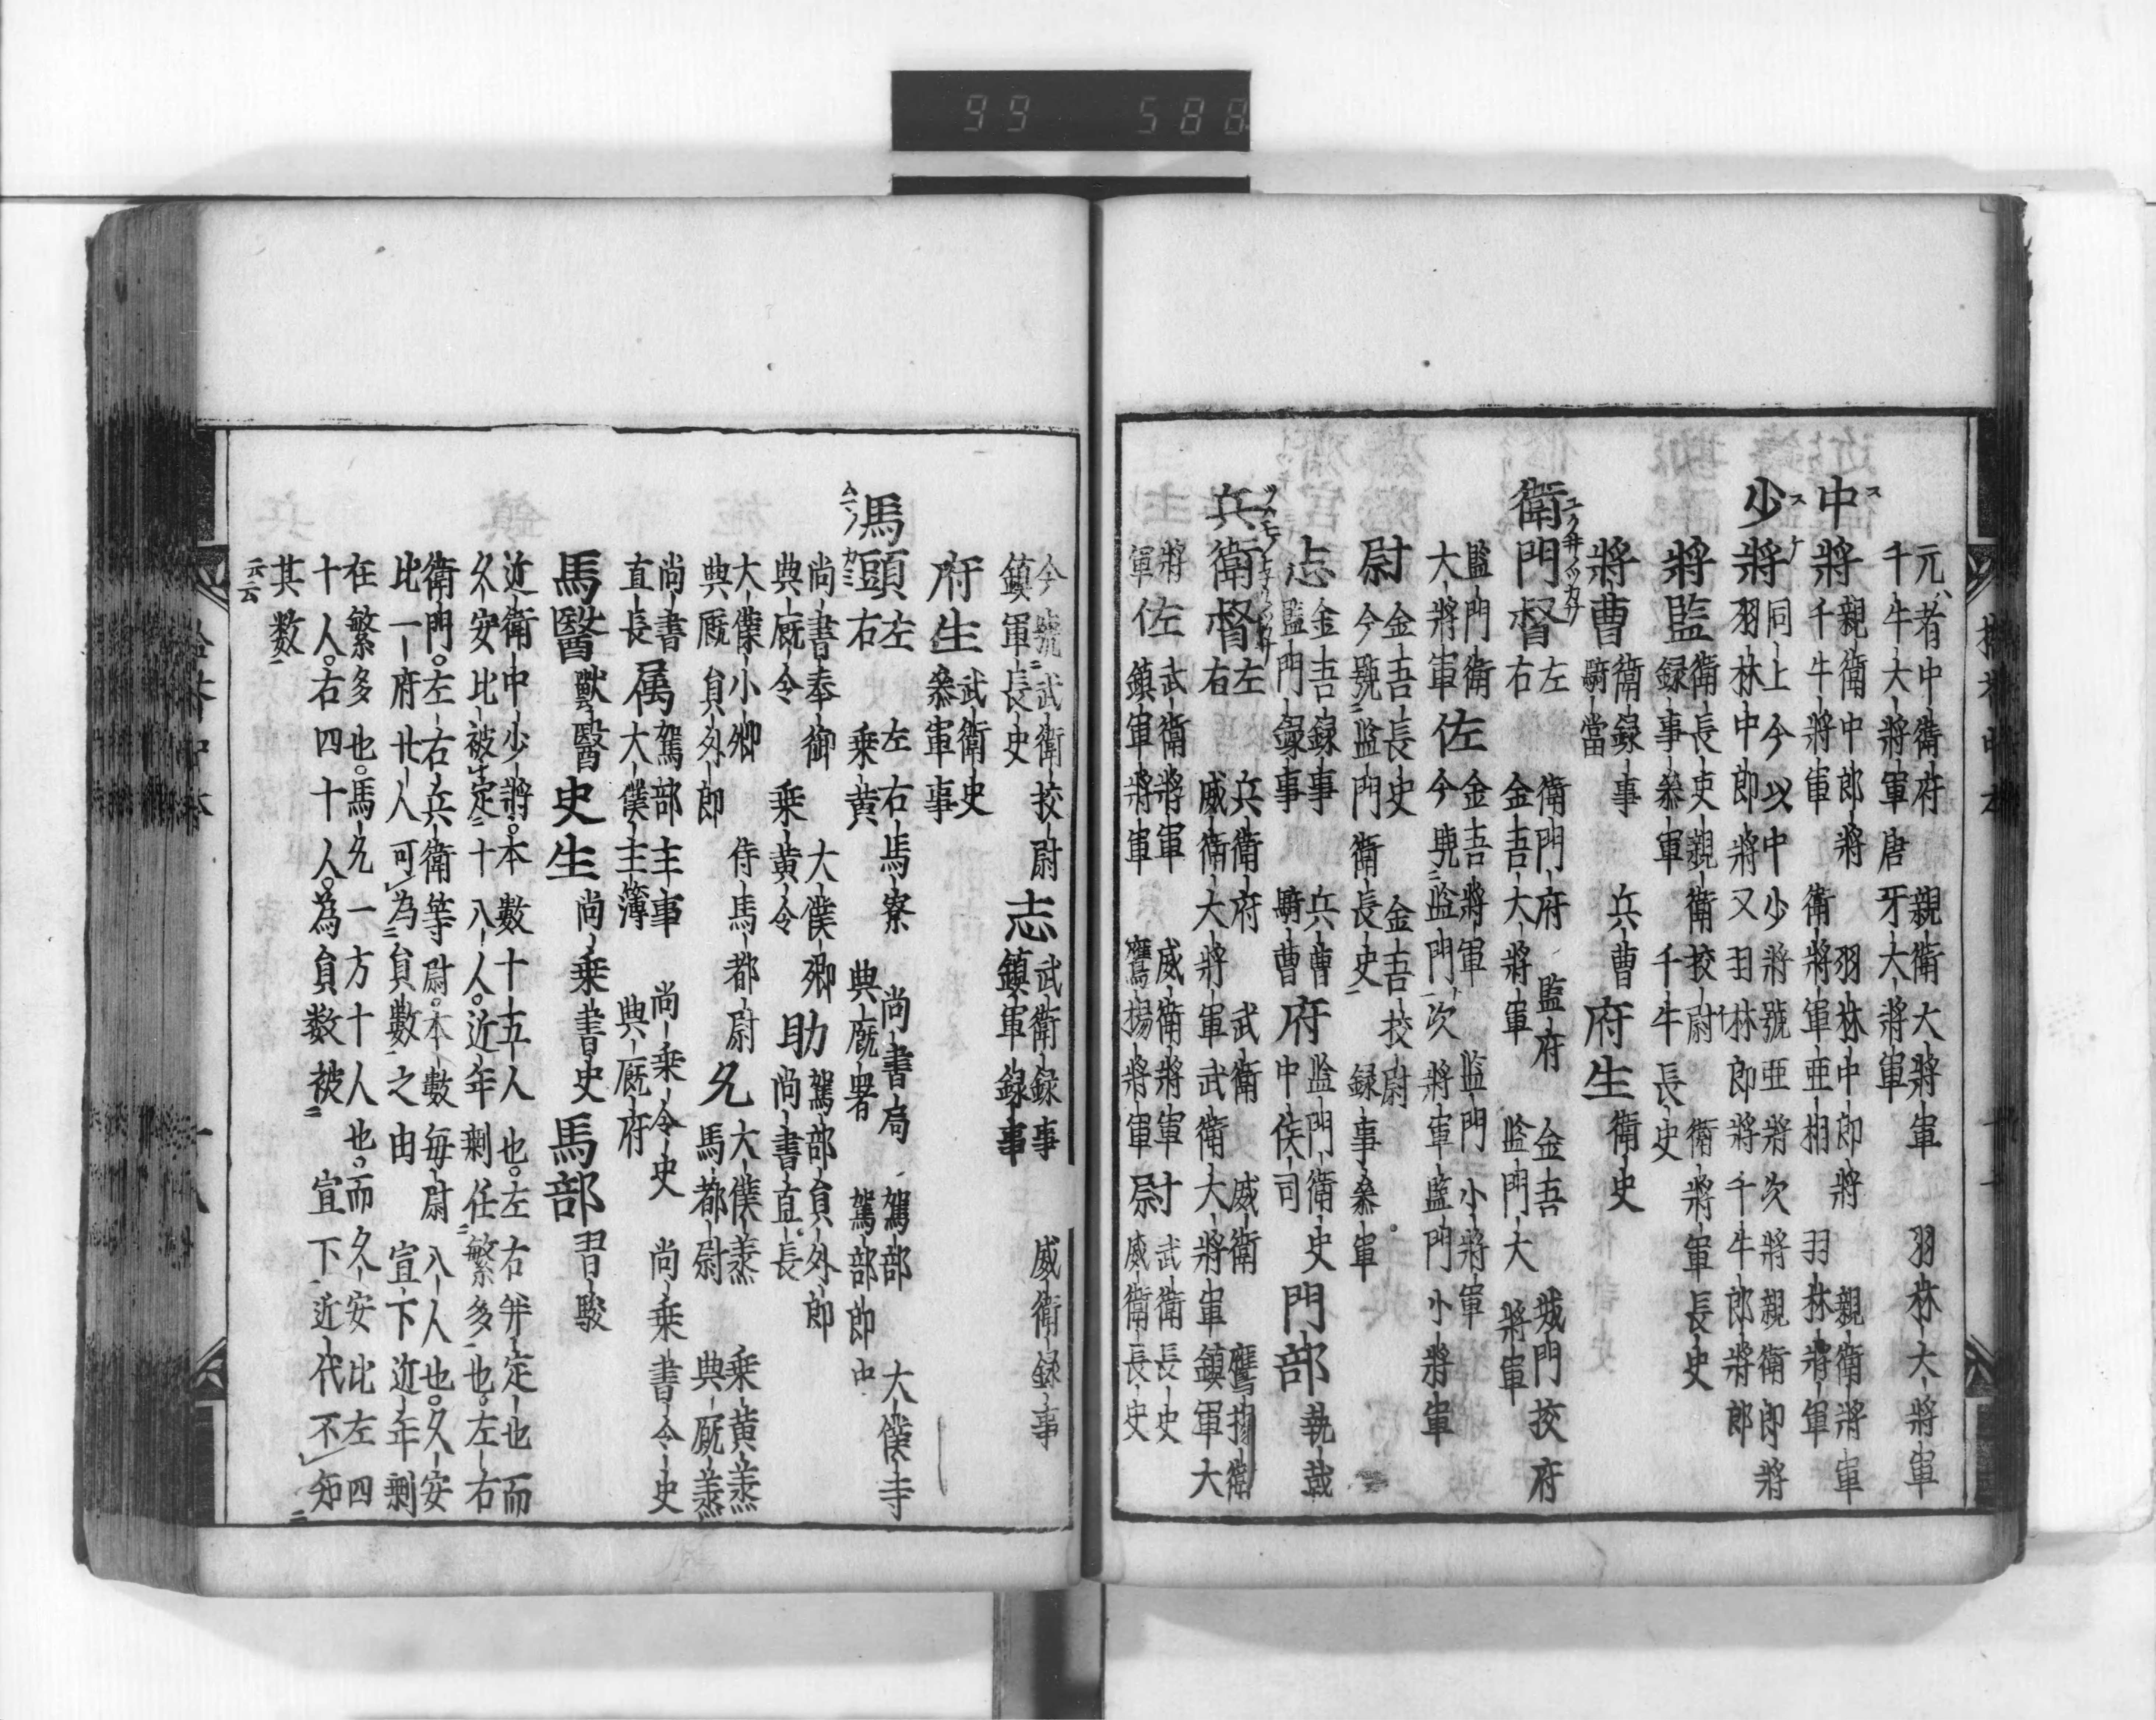 99 588
元者中衛府 親衛大將軍 羽林大將軍
千牛大將軍 唐牙大將軍
中將 親衛中郎將 羽林中郎將 親衛將軍
千牛將軍 衛將軍亞相 羽林將軍
少將 同上今以中少將號亞將次將親衛郎將
羽林中郎將又羽林郎將千牛郎將郎
將監 衛長史親衛校尉 衛將軍長史
録事參軍 千牛長史
將曹 衛録事 兵曹 府生 衛史
騎當
衛門督 左右 衛門府 監府 金吾 城門校府
金吾大將軍 監門大將軍
監門衛大將軍 佐 金吾將軍 監門小將軍
今號監門次將軍監門小將軍
尉 金吾長史 金吾校尉
今號監門衛長史 録事參軍
志 金吾録事 兵曹 府 監門衛史 門部 執戟
監門録事 騎曹 中侯司
兵衛督 左右 兵衛府 武衛 威衛 鷹揚衛
威衛大將軍武衛大將軍鎮軍大
將軍 佐 武衛將軍 威衛將軍 尉 武衛長史
鎮軍將軍 鷹揚將軍 威衛長史
今號武衛校尉 志 武衛録事 威衛録事
鎮軍長史 鎮軍録事
府生 武衛史
參軍事
馬頭 左右 左右馬寮 尚書局 駕部 大僕寺
乗黄 典厩署 駕部郎中
尚書奉御 大僕卿 助 駕部員外郎
典厩令 乗黄令 尚書直長
大僕小卿 侍馬都尉 允 大僕丞 乗黄丞
典厩員外郎 馬都尉 典厩丞
尚書直長 属 駕部主事 尚乗令史 尚乗書令史
大僕主簿 典厩府
馬醫 獸醫 史生 尚乗書史 馬部 習馭
近衛中少將。本數十五人也。左右并定也而
久安比被定十八人。近年剰任繁多也。左右
衛門。左右兵衛等尉。本數毎尉八人也。久安
比一府廿人可為員數之由宣下近年剰
在繁多也。馬允一方十人也。而久安比左四
十人。右四十人。為員数被宣下近代不知
其数
云云